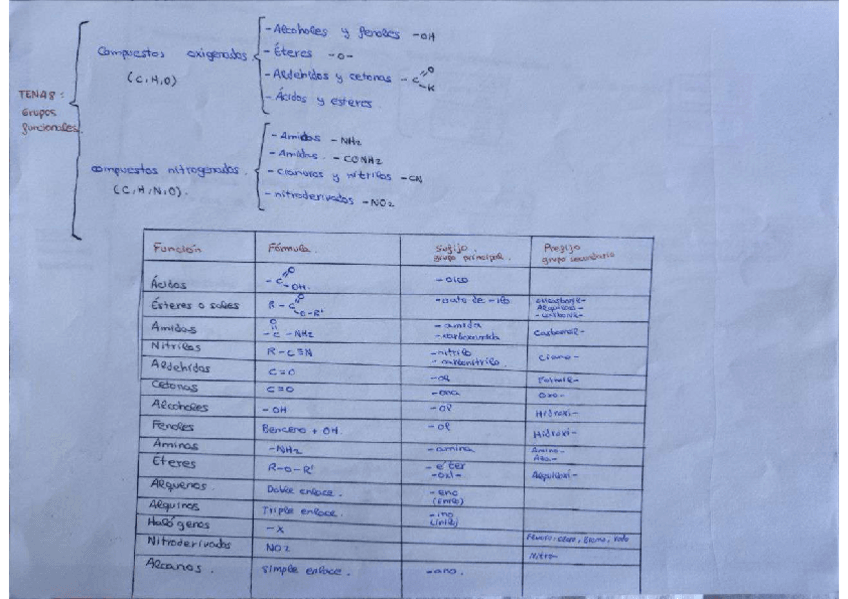 - Alcoholes y fenoles -OH
Compuestos oxigenados - Éteres -O-
(C, H, O) - Aldehídos y cetonas -C
- Ácidos y esteres.
TEMA 8:
Grupos
funcionales.
- Aminas -NH2
- Amidas. -CONH2
compuestos nitrogenados. - cianuros y nitrilos -CN
(C, H, N, O). - nitroderivados -NO2
Función Fórmula. Sufijo. grupo principal. Prefijo grupo secundario
Ácidos -C O OH. -oico
Ésteres o sales R-C O O-R' -ato de -ilo
Amidas O -C-NH2 -amida -carboxamida
Nitrilos R-C≡N -nitrilo -carbonitrilo. Ciano-
Aldehídos C=O -al Formil-
Cetonas C=O -ona Oxo-
Alcoholes -OH -ol Hidroxi-
Fenoles Benceno + OH. -ol Hidroxi-
Aminas -NH2 -amina Amino- Aza-
Éteres R-O-R' -eter -oxi-
Alquenos. Doble enlace. -eno (enilo)
Alquinos Triple enlace. -ino (inilo)
Halógenos -X Fluoro, cloro, Bromo, Yodo
Nitroderivados NO2 Nitro-
Alcanos. simple enlace. -ano.